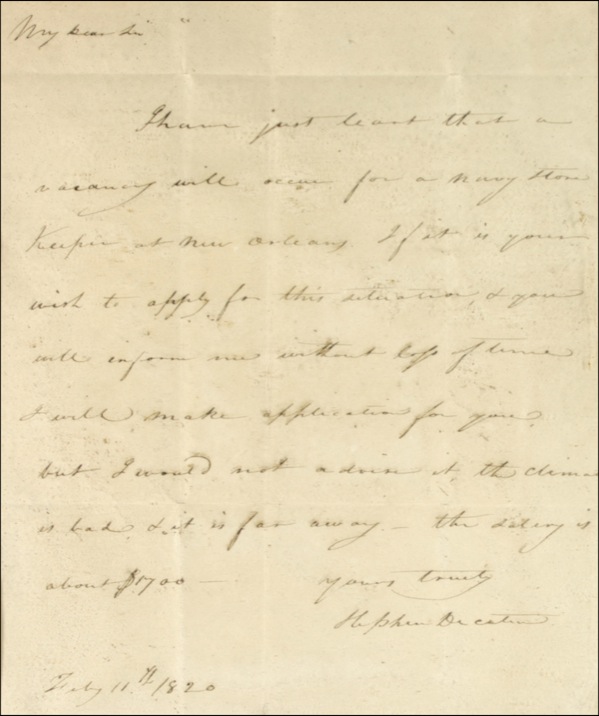 My Dear Sir
I have just learnt that a
vacancy will occur for a Navy Store
Keeper at New Orleans. If it is your
wish to apply for this situation, & you
will inform me without loss of time
I will make application for you,
but I would not advise it, the climate
is bad, & it is far away – the salery is
about $1700 –
yours truely
Stephen Decatur
Feby 11th 1820